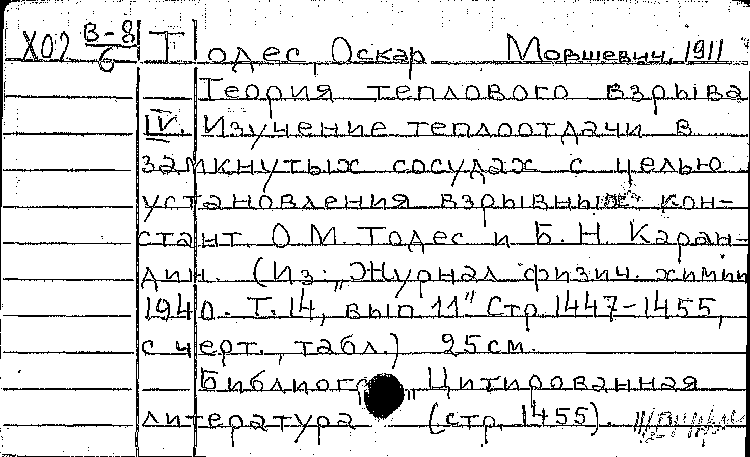 X02 В-8/6 Тодес, Оскар Мовшевич, 1911
Теория теплового взрыва
IV. Изучение теплоотдачи в
замкнутых сосудах с целью
установления взрывных кон-
стант. О.М. Тодес и Б.Н. Каран-
дин. (Из: „Журнал физич. химии
1940. Т. 14, вып 11" Стр 1447-1455,
с черт., табл.) 25 см.
Библиогр „Цитированная
литература" (стр. 1455).